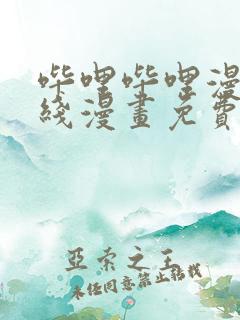 哔哩哔哩漫
线漫畫免費
亚索之王
未经同意禁止转载